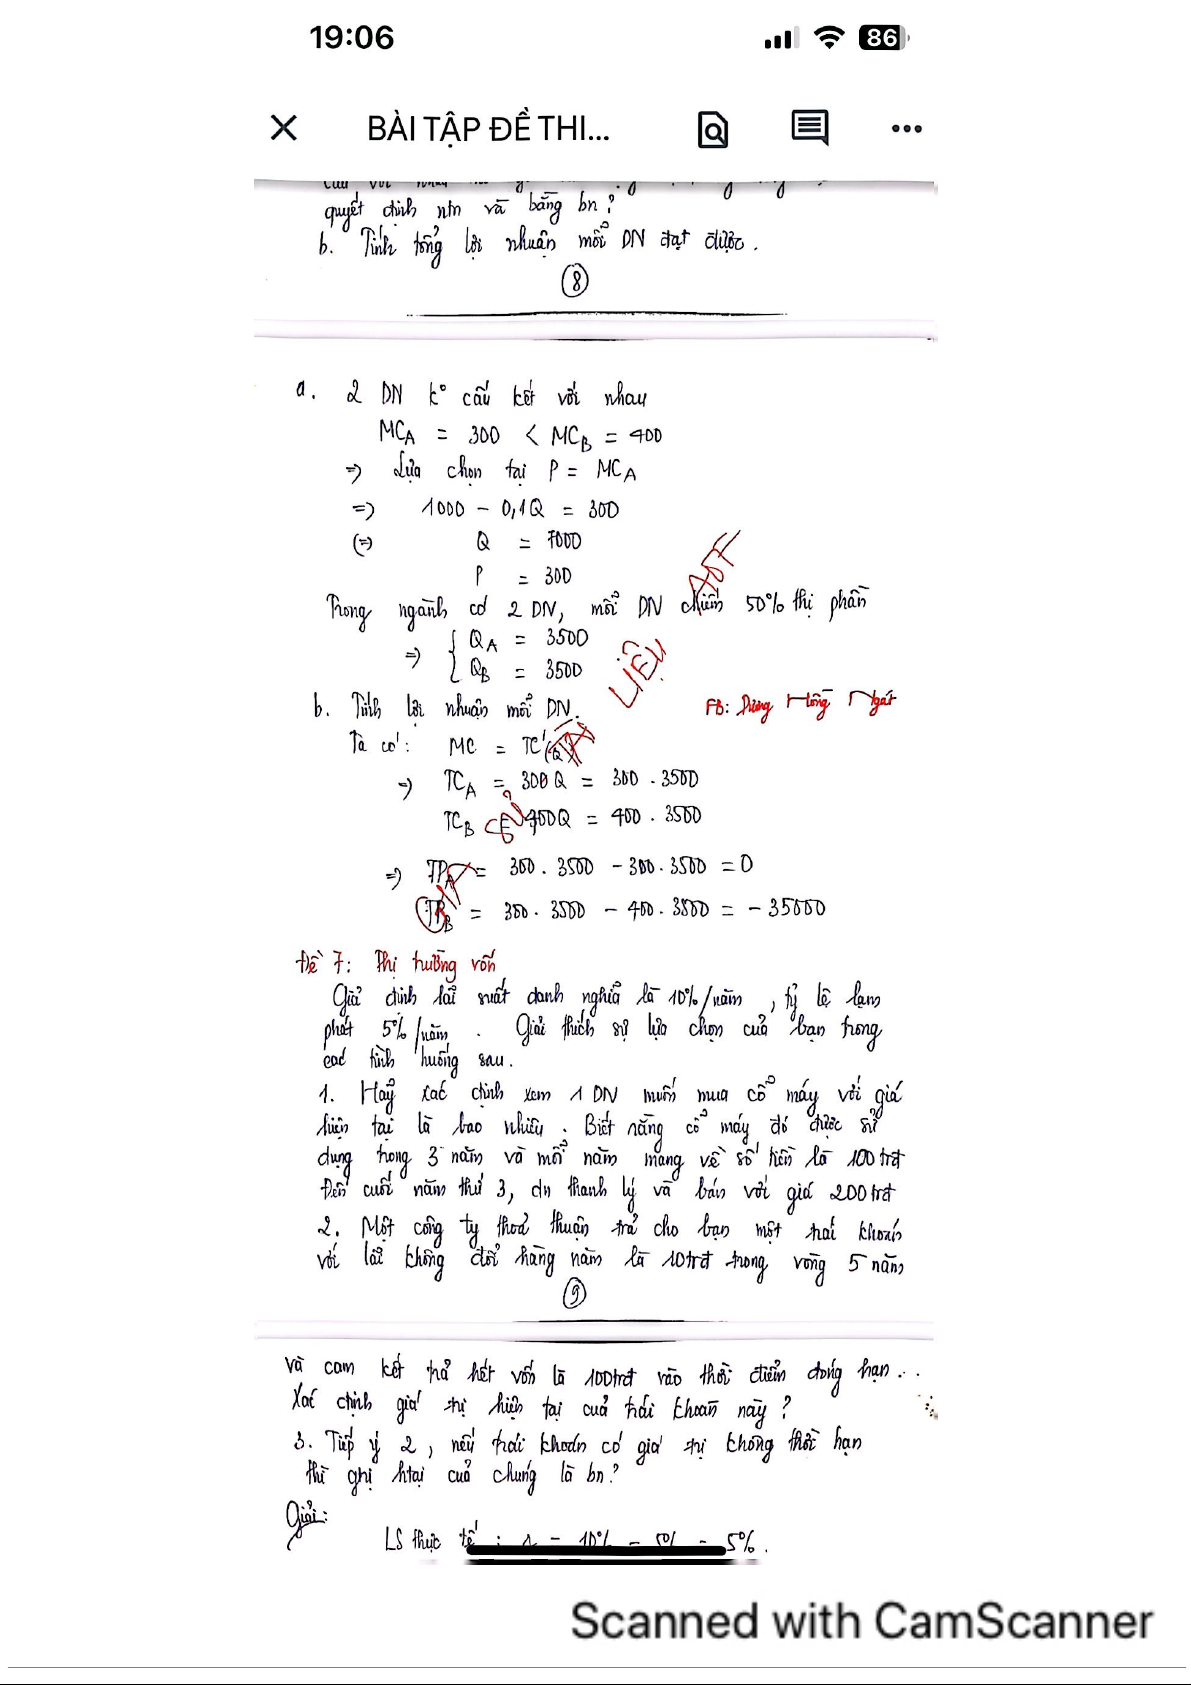 19:06
86
BÀI TẬP ĐỀ THI...
quyết định ntn và bằng bn?
b. Tính tổng lợi nhuận mỗi DN đạt được.
8
a. 2 DN k° cấu kết với nhau
MCA = 300 < MCB = 400
=> Lựa chọn tại P = MCA
=> 1000 - 0,1Q = 300
(=> Q = 7000
P = 300
Trong ngành có 2 DN, mỗi DN chiếm 50% thị phần
=> { QA = 3500
QB = 3500
b. Tính lợi nhuận mỗi DN.
FB: Dương Hồng Ngát
Ta có: MC = TC'(Q)
=> TCA = 300Q = 300 . 3500
TCB = 400Q = 400 . 3500
=> TPA = 300 . 3500 - 300 . 3500 = 0
TPB = 300 . 3500 - 400 . 3500 = - 35000
TÀI LIỆU AOF
Đề 7: Thị trường vốn
Giả định lãi suất danh nghĩa là 10%/năm, tỷ lệ lạm
phát 5%/năm. Giải thích sự lựa chọn của bạn trong
các tình huống sau.
1. Hãy xác định xem 1 DN muốn mua cỗ máy với giá
hiện tại là bao nhiêu. Biết rằng cỗ máy đó được sử
dụng trong 3 năm và mỗi năm mang về số tiền là 100trđ
Đến cuối năm thứ 3, dn thanh lý và bán với giá 200trđ
2. Một công ty thoả thuận trả cho bạn một trái khoán
với lãi không đổi hàng năm là 10trđ trong vòng 5 năm
9
và cam kết trả hết vốn là 100trđ vào thời điểm đóng hạn..
Xác định giá trị hiện tại của trái khoán này?
3. Tiếp ý 2, nếu trái khoán có giá trị không thời hạn
thì ghị htại của chúng là bn?
Giải:
LS thực tế : r = 10% - 5% = 5%.
Scanned with CamScanner